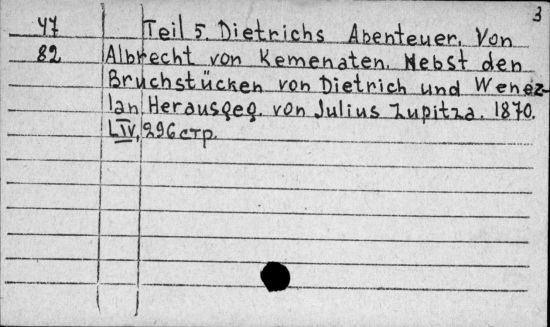 3
47 Teil 5. Dietrichs Abenteuer. Von
82 Albrecht von Kemenaten. Nebst den
Bruchstücken von Dietrich und Wenez-
lan Herausgeg. von Julius Zupitza. 1870.
LIV, 296 стр.